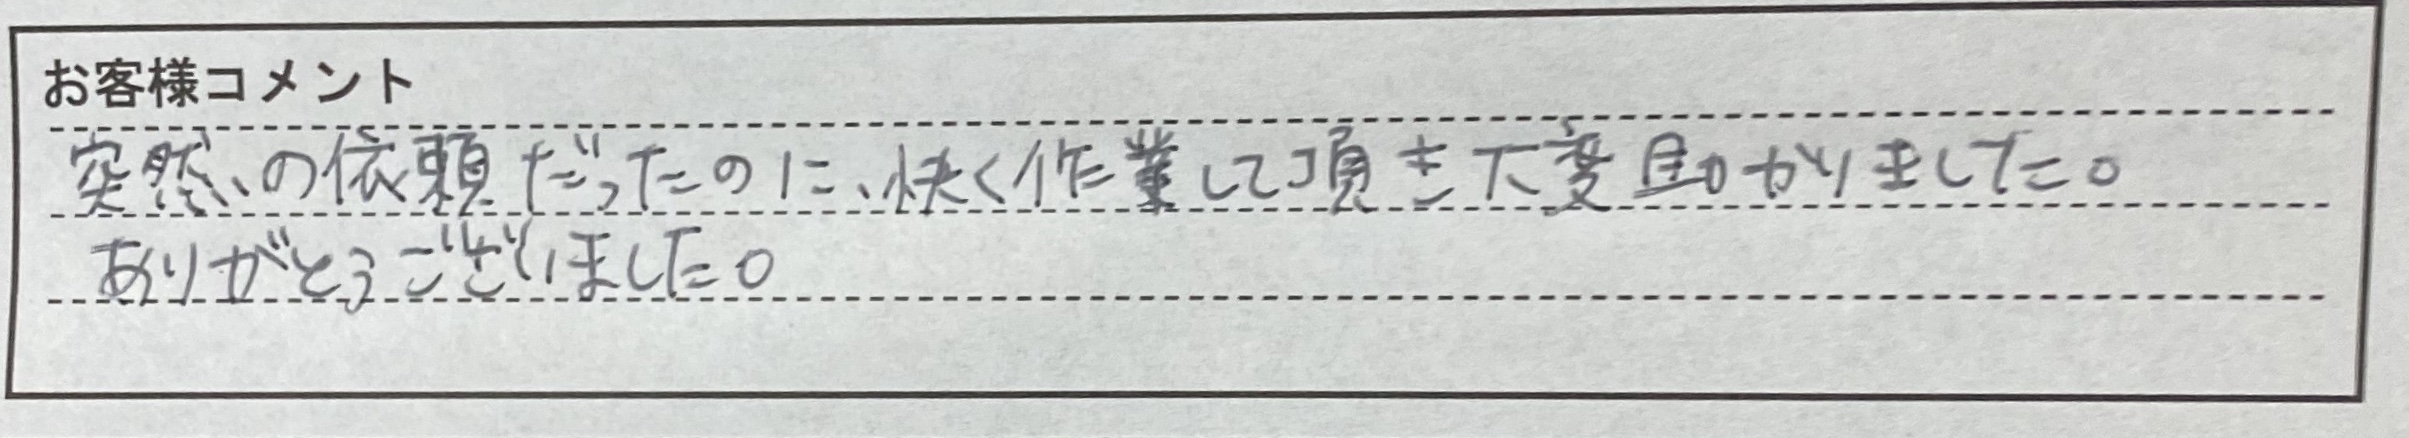 お客様コメント
突然の依頼だったのに、快く作業して頂き大変助かりました。
ありがとうございました。